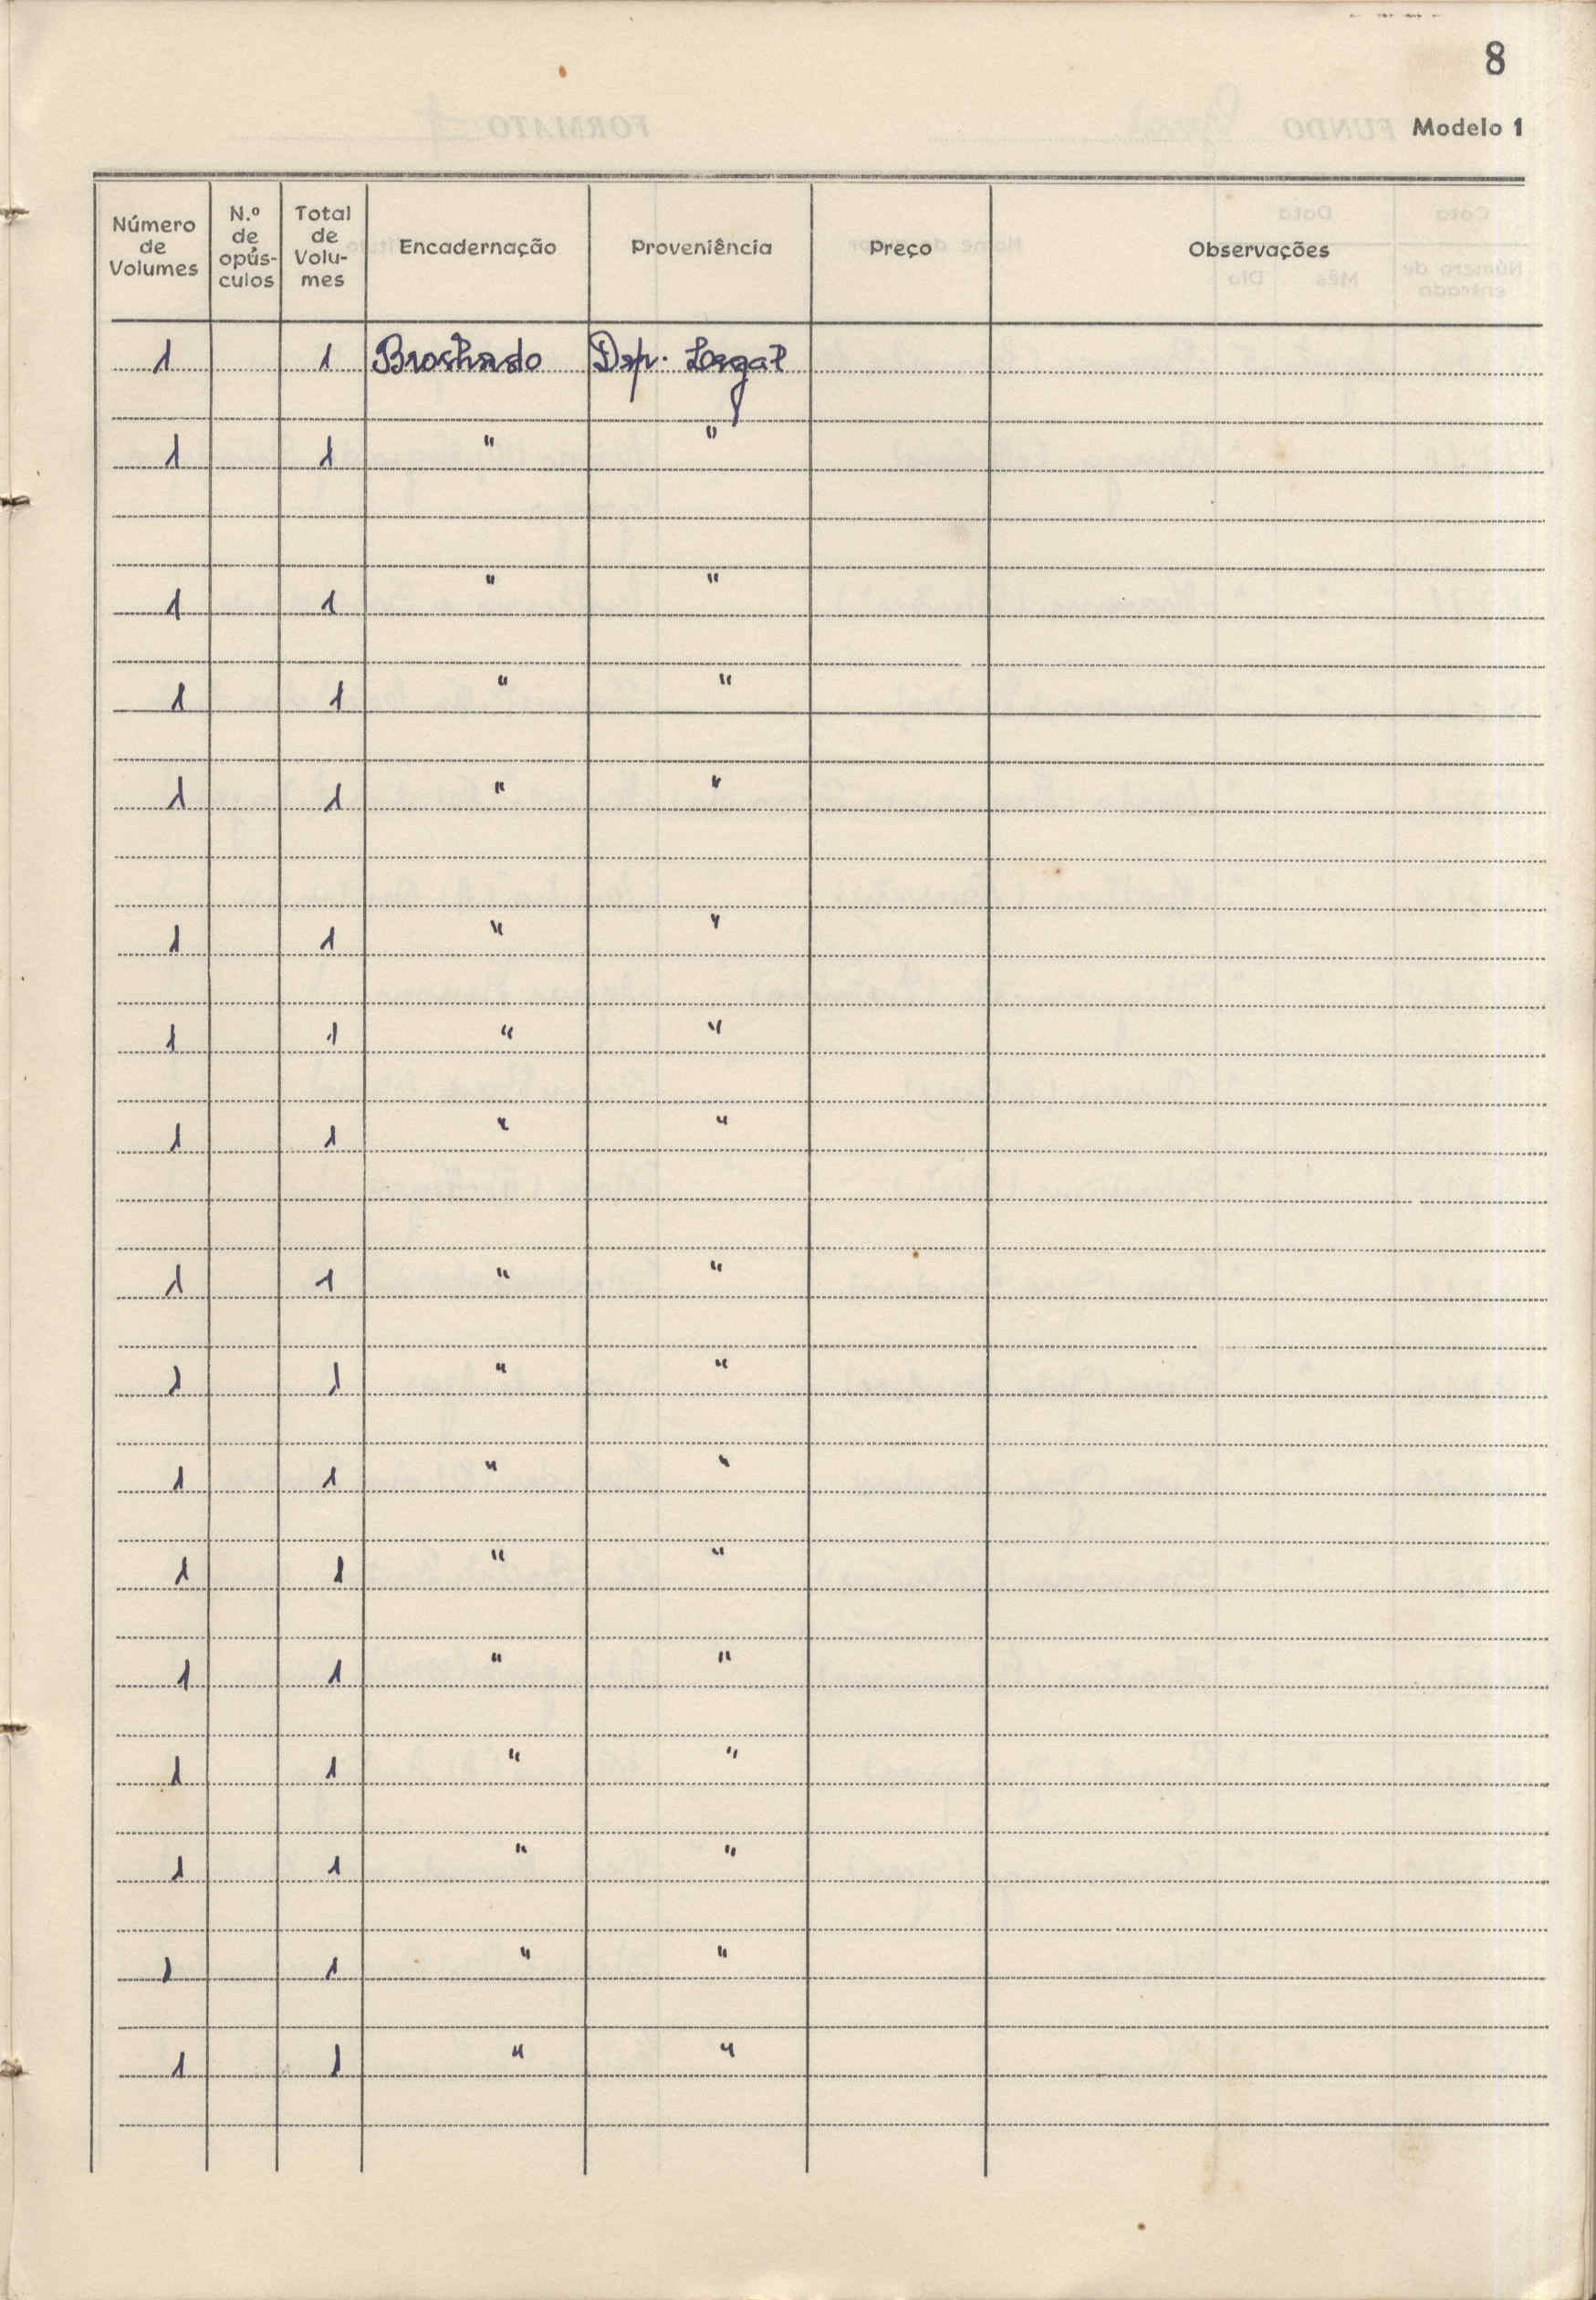 8
Modelo 1
Número de Volumes | N.º de opús-culos | Total de Volu-mes | Encadernação | Proveniência | Preço | Observações
1 1 Brochado Dep. Legal
1 1 " "
1 1 " "
1 1 " "
1 1 " "
1 1 " "
1 1 " "
1 1 " "
1 1 " "
1 1 " "
1 1 " "
1 1 " "
1 1 " "
1 1 " "
1 1 " "
1 1 " "
1 1 " "